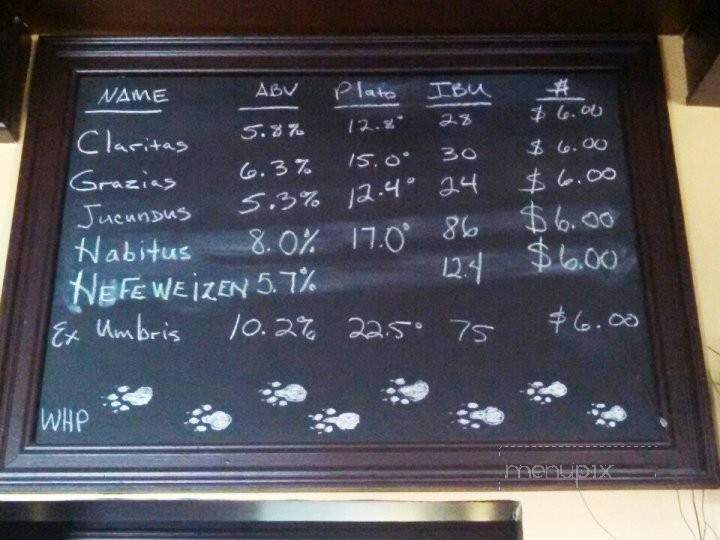 NAME ABV Plato IBU #
Claritas 5.8% 12.8° 28 $6.00
Grazias 6.3% 15.0° 30 $6.00
Jucundus 5.3% 12.4° 24 $6.00
Habitus 8.0% 17.0° 86 $6.00
HEFEWEIZEN 5.7% 12.4 $6.00
Ex Umbris 10.2% 22.5° 75 $6.00
WHP
menupix